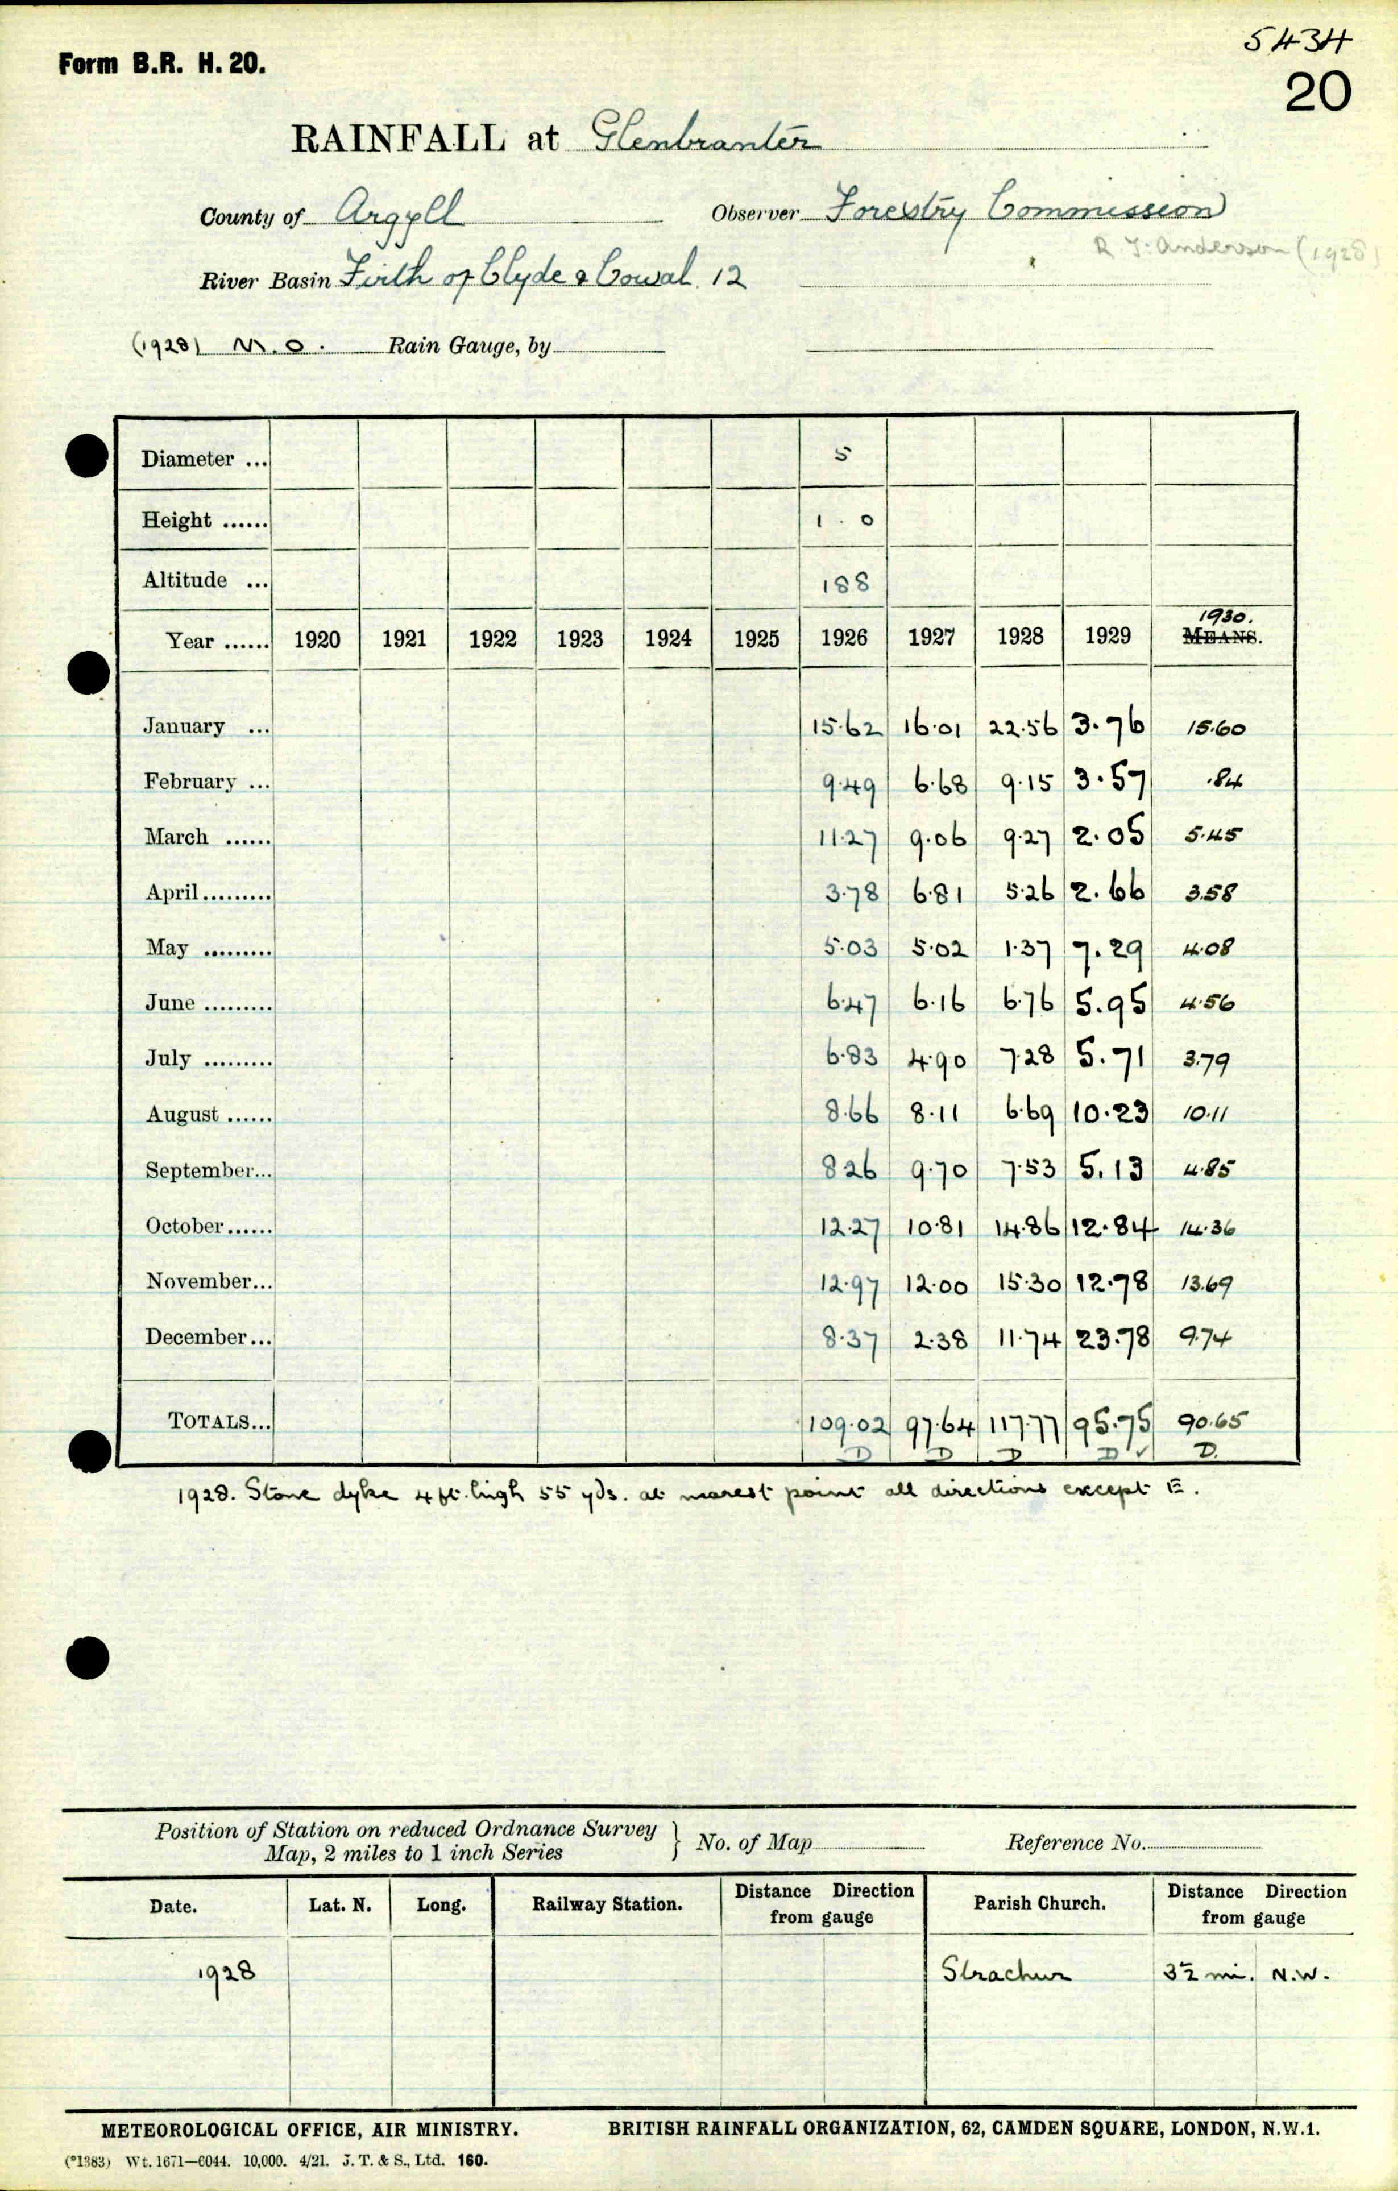 5434
Form B.R. H. 20.
20
RAINFALL at Glenbranter
County of Argyll Observer Forestry Commission
R. J. Anderson (1928)
River Basin Firth of Clyde & Cowal 12
(1928) M.O. Rain Gauge, by
Diameter ... 5
Height ...... 1 . 0
Altitude ... 188
1930.
Year ...... 1920 1921 1922 1923 1924 1925 1926 1927 1928 1929 MEANS.
January ... 15.62 16.01 22.56 3.76 15.60
February ... 9.49 6.68 9.15 3.57 .84
March ...... 11.27 9.06 9.27 2.05 5.45
April ......... 3.78 6.81 5.26 2.66 3.58
May ......... 5.03 5.02 1.37 7.29 4.08
June ......... 6.47 6.16 6.76 5.95 4.56
July ......... 6.83 4.90 7.28 5.71 3.79
August ...... 8.66 8.11 6.69 10.23 10.11
September... 8.26 9.70 7.53 5.13 4.85
October ...... 12.27 10.81 14.86 12.84 14.36
November... 12.97 12.00 15.30 12.78 13.69
December... 8.37 2.38 11.74 23.78 9.74
TOTALS... 109.02 97.64 117.77 95.75 90.65
D D D D ✓ D.
1928. Stone dyke 4 ft. high 55 yds. at nearest point all directions except E.
Position of Station on reduced Ordnance Survey
Map, 2 miles to 1 inch Series } No. of Map Reference No.
Date. Lat. N. Long. Railway Station. Distance Direction from gauge Parish Church. Distance Direction from gauge
1928 Strachur 3½ mi. N.W.
METEOROLOGICAL OFFICE, AIR MINISTRY. BRITISH RAINFALL ORGANIZATION, 62, CAMDEN SQUARE, LONDON, N.W.1.
(*1383) Wt. 1671—6044. 10,000. 4/21. J. T. & S., Ltd. 160.